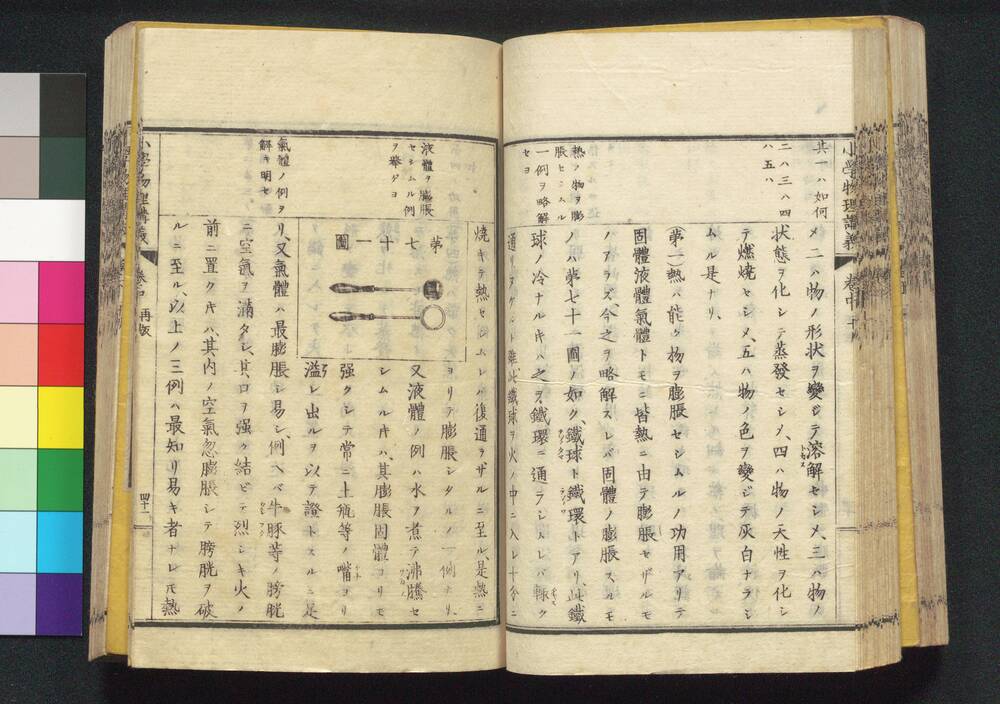 小學物理講義
卷中
其一ハ如何
二ハ三ハ四
ハ五ハ
メ二ハ物ノ形狀ヲ變ジテ溶解セシメ、三ハ物ノ
狀態ヲ化シテ蒸發セシメ、四ハ物ノ天性ヲ化シ
テ燃燒セシメ、五ハ物ノ色ヲ變ジテ灰白ナラシ
ムルル是ナリ、
第一熱ハ能ク物ヲ膨脹セシムルノ功用アリテ
固體液體氣體トモニ皆熱ニ由テ膨脹セザルモ
ノアラズ、今之ヲ略解スレバ固體ノ膨脹スルモ
熱ノ物ヲ膨
脹セシムル
一例ヲ略解
セヨ
ノハ第七十一圖ノ如ク、鐵球ト鐵環トアリ、此鐵
球ノ冷ナルキハ之ヲ鐵環ニ通ラシムレバ輙ク
通リヌケレト雖、此鐵球ヲ火ノ中ニ入レ十分ニ
燒キテ熱セシムレバ復通ラザルニ至ル、是熱ニ
ヨリテ膨脹シタルノ一例ナリ、
液體ヲ膨脹
セシムル例
ヲ擧ゲヨ
第七十一圖
又液體ノ例ハ水ヲ煮テ沸騰セ
シムルキハ、其膨脹固體ヨリモ
强クシテ常ニ土瓶等ノ嘴ヨリ
溢レ出ルヲ以テ證トスルニ足
氣體ノ例ヲ
解キ明セ
リ、又氣體ハ最膨脹シ易シ、例ヘバ牛豚等ノ膀胱
ニ空氣ヲ滿タシ、其口ヲ强ク結ビテ烈シキ火ノ
前ニ置クキハ、其內ノ空氣忽膨脹シテ膀胱ヲ破
ルニ至ル、以上ノ三例ハ最知リ易キ者ナレ𪜈熱
小學物理講義
卷中
再版
四十一